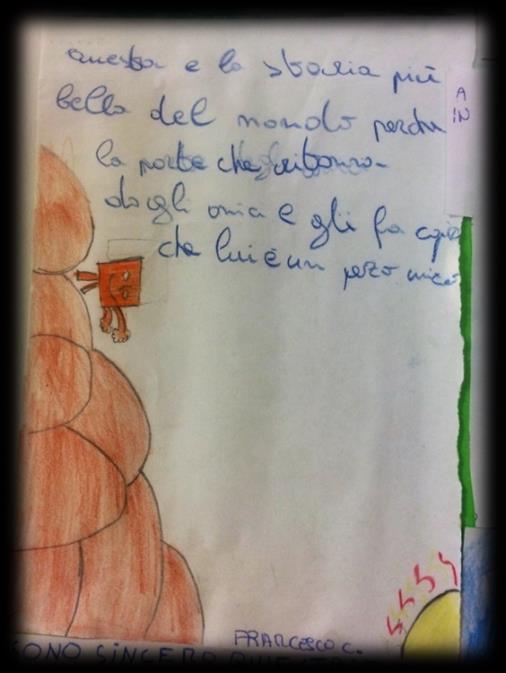 questa e la storia più
bella del mondo perche
la parte che ritorna
dagli amici E gli fa capire
che lui è un pezzo unico
A
IN
FRANCESCO C.
SONO SINCERO